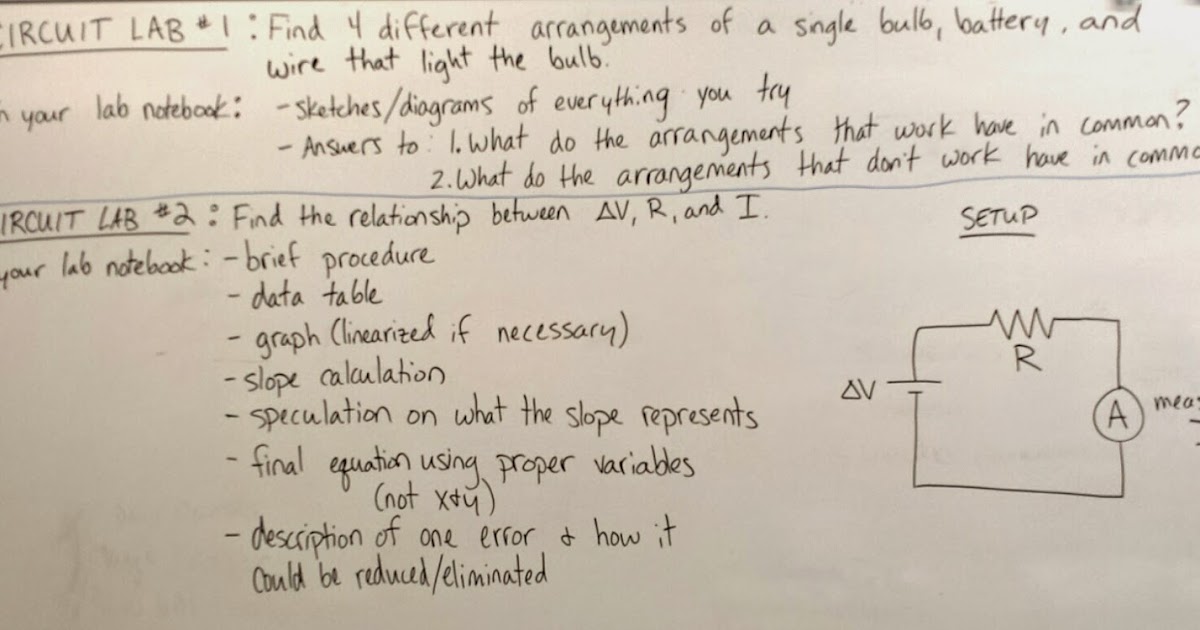 CIRCUIT LAB #1 : Find 4 different arrangements of a single bulb, battery, and
wire that light the bulb.
n your lab notebook: - sketches/diagrams of everything you try
- Answers to: 1. What do the arrangements that work have in common?
2. What do the arrangements that don't work have in commo
IRCUIT LAB #2 : Find the relationship between ΔV, R, and I.
your lab notebook: - brief procedure
- data table
- graph (linearized if necessary)
- slope calculation
- speculation on what the slope represents
- final equation using proper variables
(not x+y)
- description of one error & how it
could be reduced/eliminated
SETUP
R
ΔV
A
meas